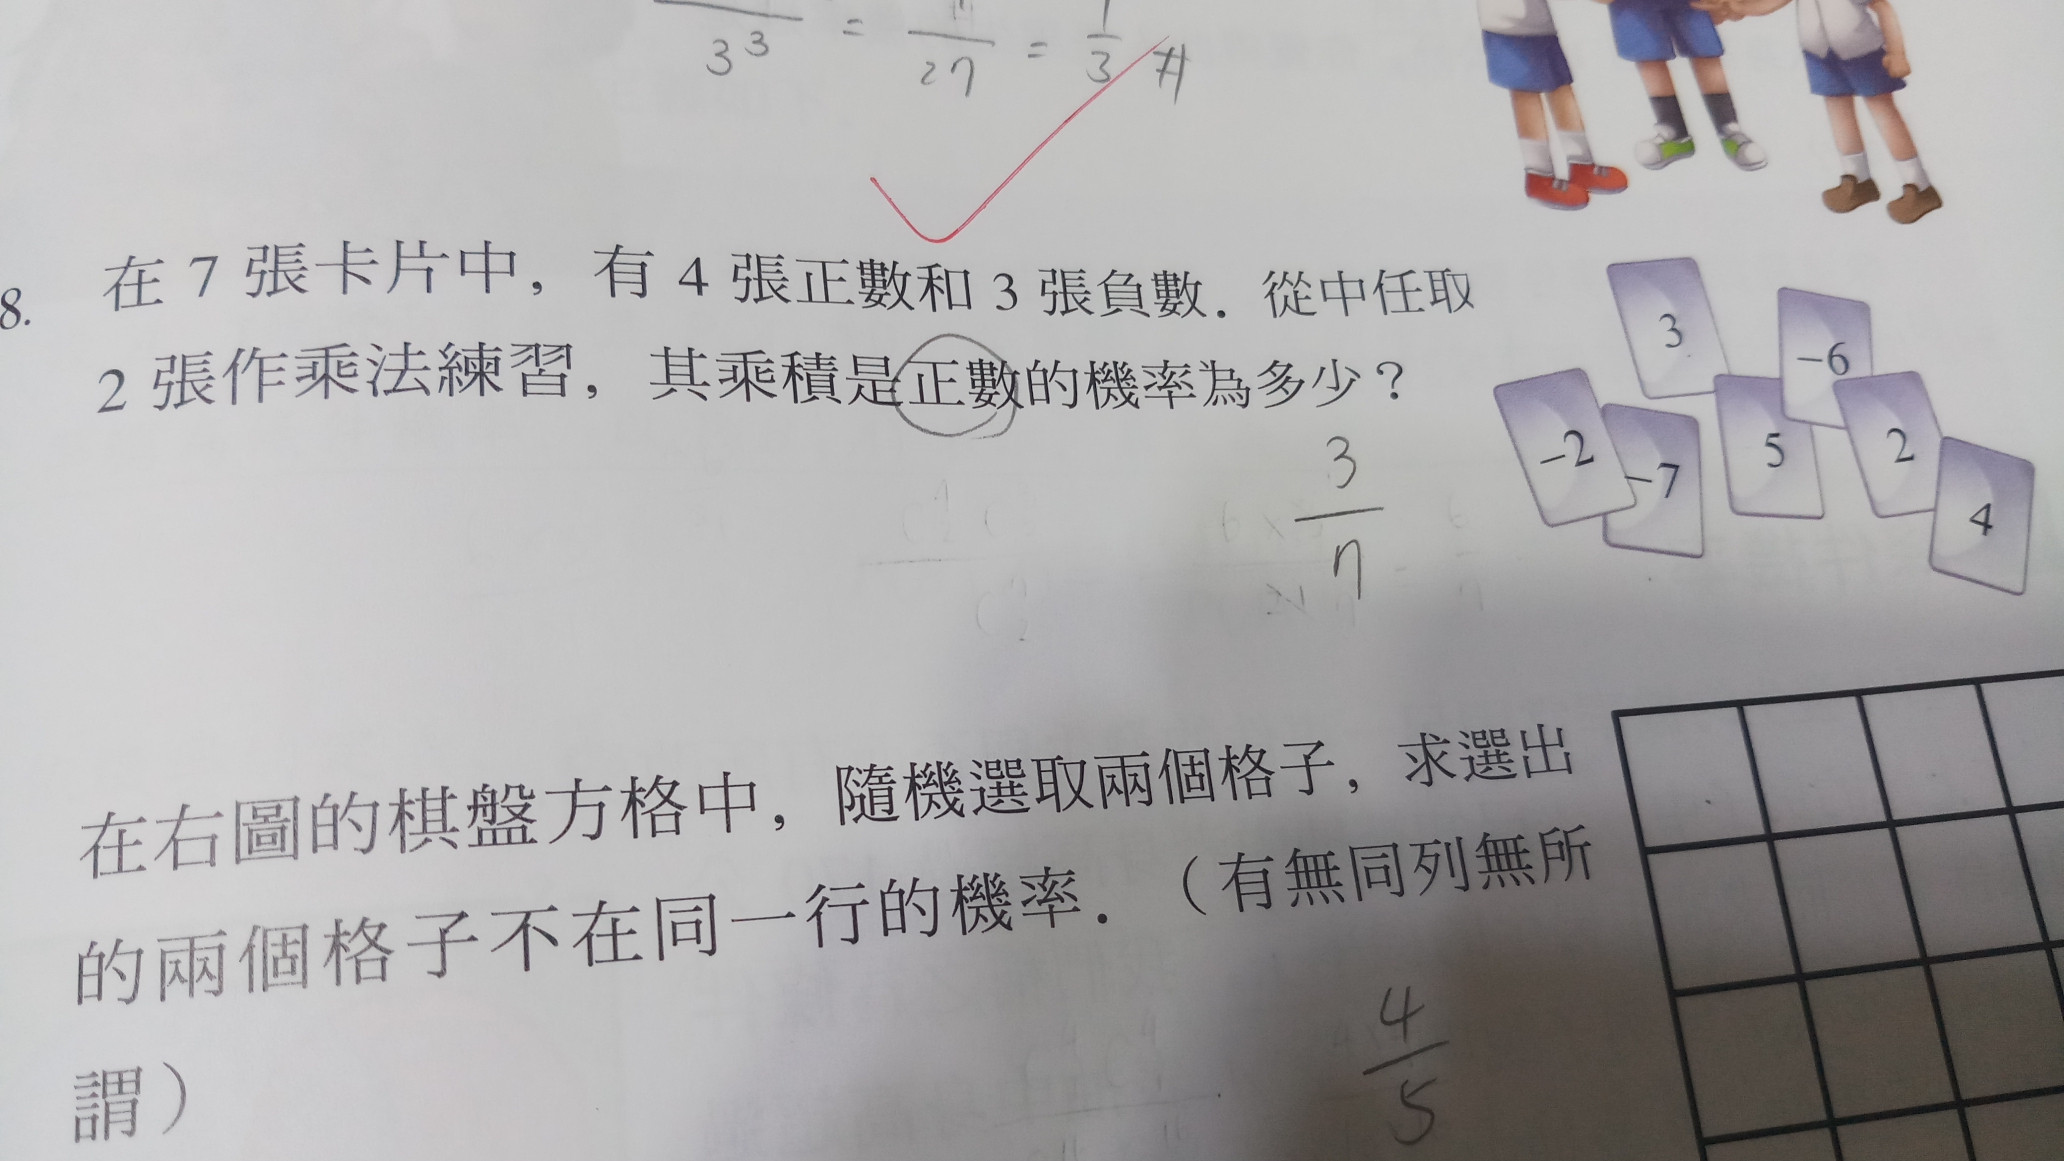 3³ = 27 = 1/3 #
8. 在 7 張卡片中，有 4 張正數和 3 張負數．從中任取
2 張作乘法練習，其乘積是正數的機率為多少？
3
-6
-2
-7
5
2
4
3/7
在右圖的棋盤方格中，隨機選取兩個格子，求選出
的兩個格子不在同一行的機率．（有無同列無所
謂）
4/5